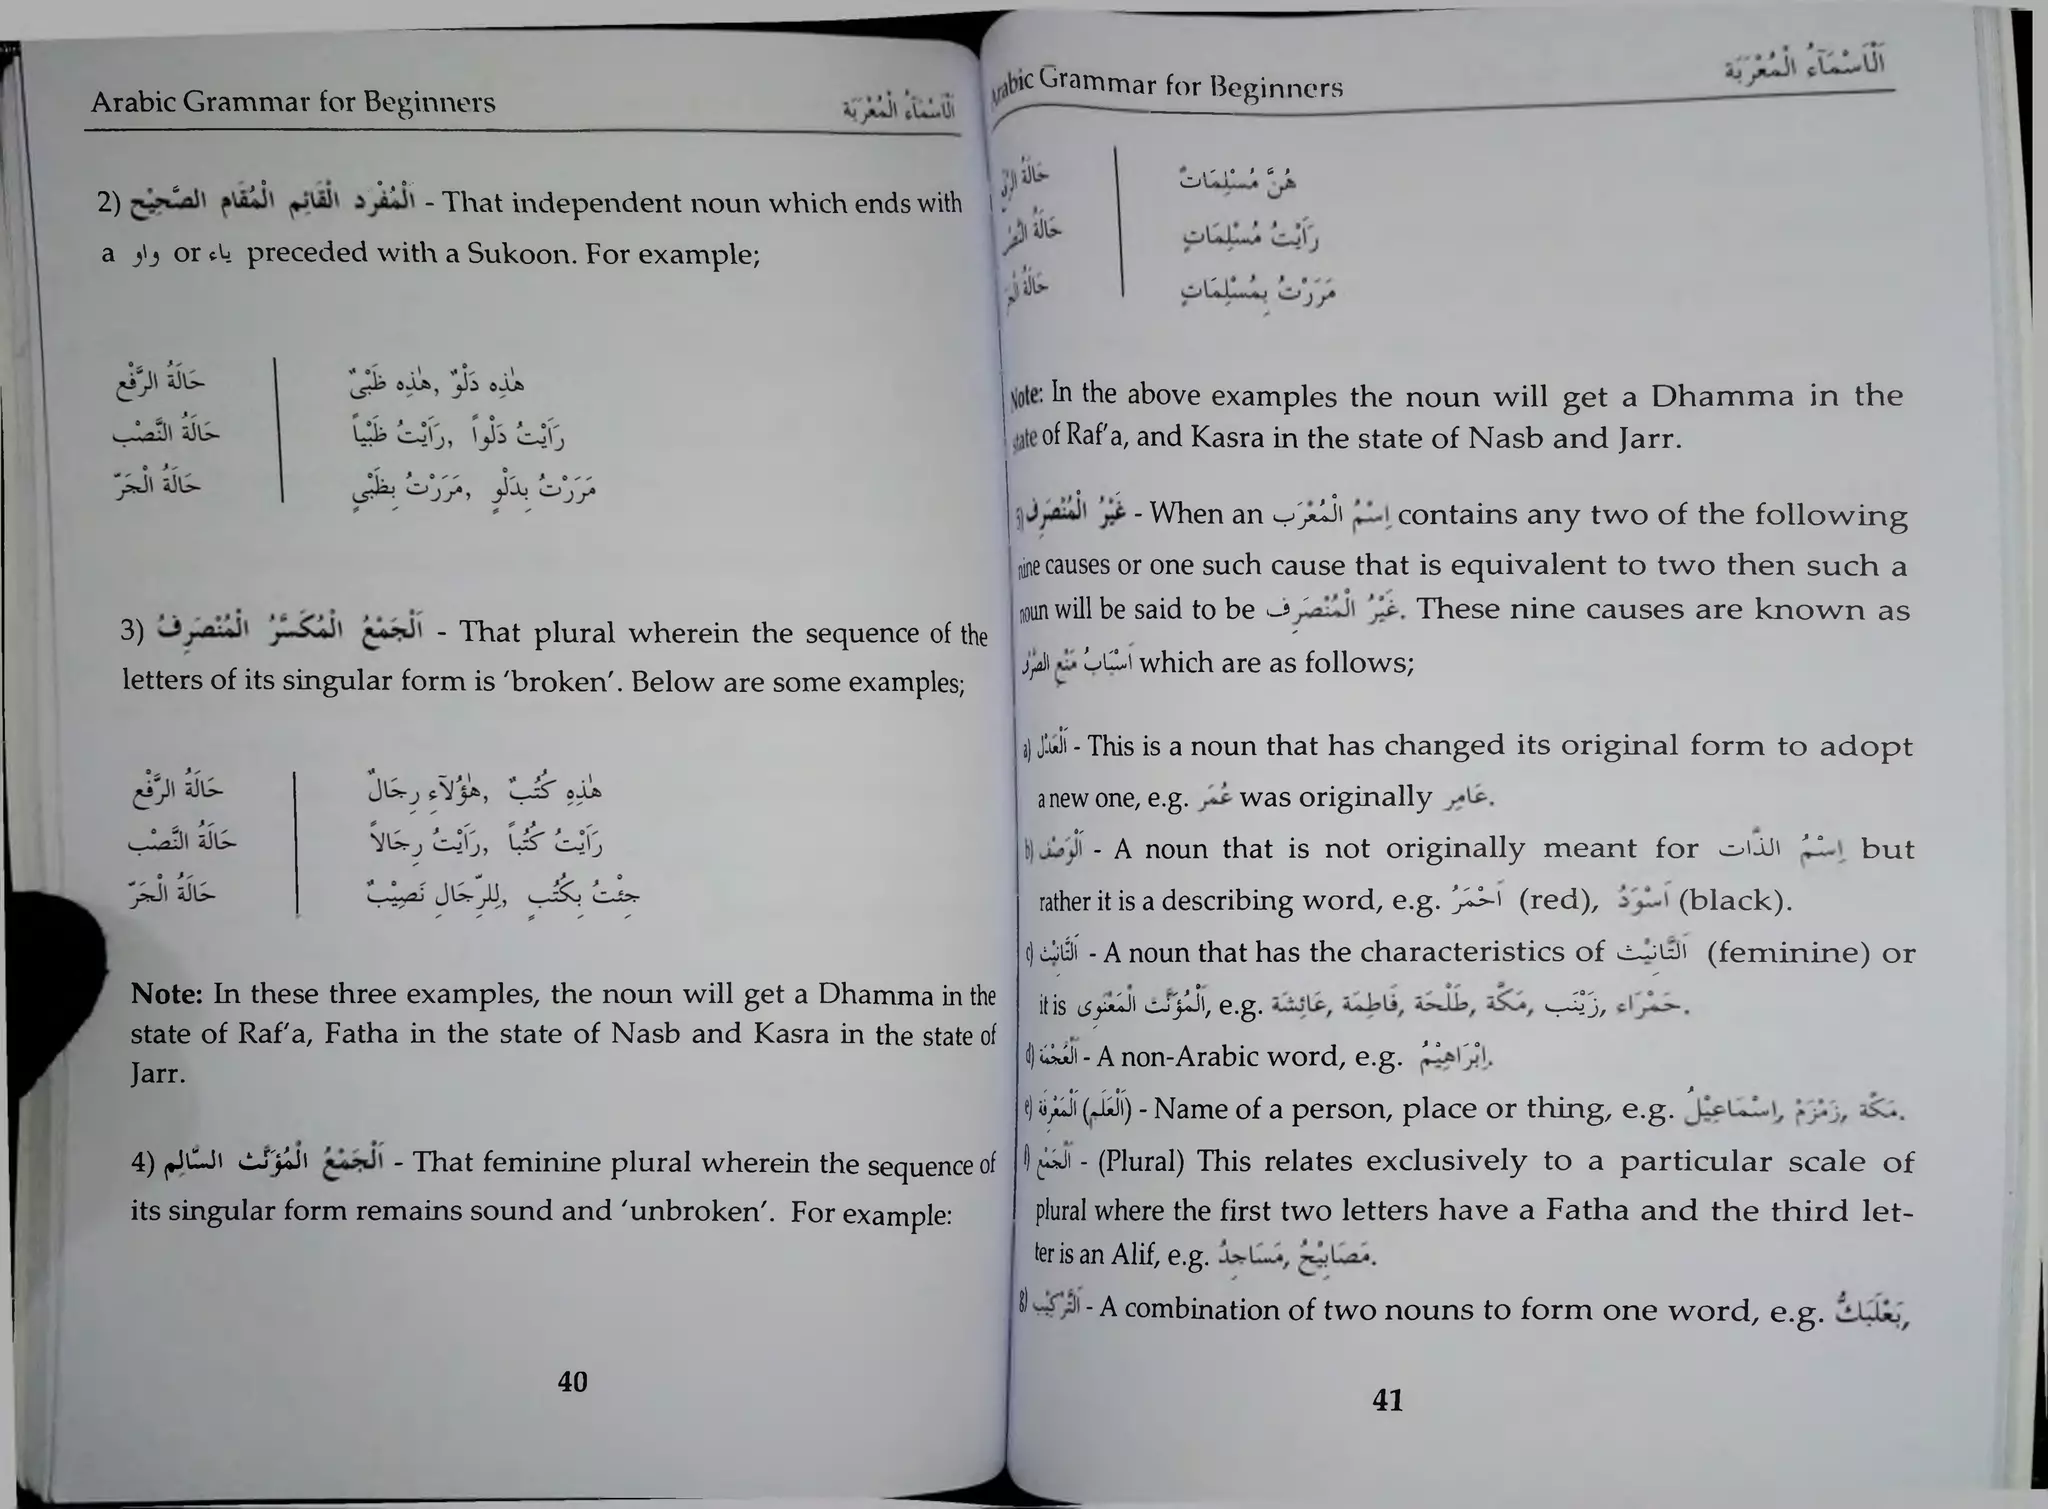 Arabic Grammar for Beginners اَلْأَسْمَآءُ الْمُعْرَبَة
2) اَلْمُفْرَد الْقَائِم الْمُقَام الصَّحِيْح - That independent noun which ends with
a واو or ياء preceded with a Sukoon. For example;
حَالَةُ الرَّفْع هٰذِه دَلْوٌ, هٰذِه ظَبْىٌ
حَالَةُ النَّصْب رَاَيْتُ دَلْواً, رَاَيْتُ ظَبْياً
حَالَةُ الْجَرّ مَرَرْتُ بِدَلْوٍ, مَرَرْتُ بِظَبْىٍ
3) اَلْجَمْعُ الْمُكَسَّرُ الْمُنْصَرِفُ - That plural wherein the sequence of the
letters of its singular form is 'broken'. Below are some examples;
حَالَةُ الرَّفْع هٰذِهِ كُتُبٌ, هٰؤُلاَءِ رِجَالٌ
حَالَةُ النَّصْب رَاَيْتُ كُتُباً, رَاَيْتُ رِجَالاً
حَالَةُ الْجَرّ جِئْتُ بِكُتُبٍ, لِلرِّجَالِ نَصِيْبٌ
Note: In these three examples, the noun will get a Dhamma in the
state of Raf'a, Fatha in the state of Nasb and Kasra in the state of
Jarr.
4) اَلْجَمْعُ الْمُؤَنَّث السَّالِم - That feminine plural wherein the sequence of
its singular form remains sound and 'unbroken'. For example:
40
Arabic Grammar for Beginners اَلْأَسْمَآءُ الْمُعْرَبَة
حَالَةُ هُنَّ مُسْلِمَاتٌ
حَالَةُ رَاَيْتُ مُسْلِمَاتٍ
حَالَةُ مَرَرْتُ بِمُسْلِمَاتٍ
Note: In the above examples the noun will get a Dhamma in the
state of Raf'a, and Kasra in the state of Nasb and Jarr.
5) غَيْرُ الْمُنْصَرِف - When an اِسْمُ الْمُعْرَب contains any two of the following
nine causes or one such cause that is equivalent to two then such a
noun will be said to be غَيْرُ الْمُنْصَرِف. These nine causes are known as
اَسْبَابُ مَنْعِ which are as follows;
a) اَلْعَدْل - This is a noun that has changed its original form to adopt
a new one, e.g. عُمَر was originally عَامِر.
b) اَلْوَصْف - A noun that is not originally meant for اِسْمُ الذَّات but
rather it is a describing word, e.g. اَحْمَرُ (red), اَسْوَدُ (black).
c) اَلتَّانِيْث - A noun that has the characteristics of اَلتَّانِيْث (feminine) or
it is اَلْمُؤَنَّث الْمَعْنَوِى, e.g. حَمْرَاء ,زَيْنَب ,مَكَّة ,طَلْحَة ,فَاطِمَة ,عَائِشَة.
d) اَلْعُجْمَة - A non-Arabic word, e.g. اِبْرَاهِيْمُ.
e) اَلْمَعْرِفَة (اَلْعَلَم) - Name of a person, place or thing, e.g. مَكَّة ,زَمْزَمُ ,اِسْمَاعِيْلُ.
f) اَلْجَمْع - (Plural) This relates exclusively to a particular scale of
plural where the first two letters have a Fatha and the third let-
ter is an Alif, e.g. مَصَابِيْحُ ,مَسَاجِدُ.
g) اَلتَّرْكِيْب - A combination of two nouns to form one word, e.g. بَعْلَبَكُّ,
41